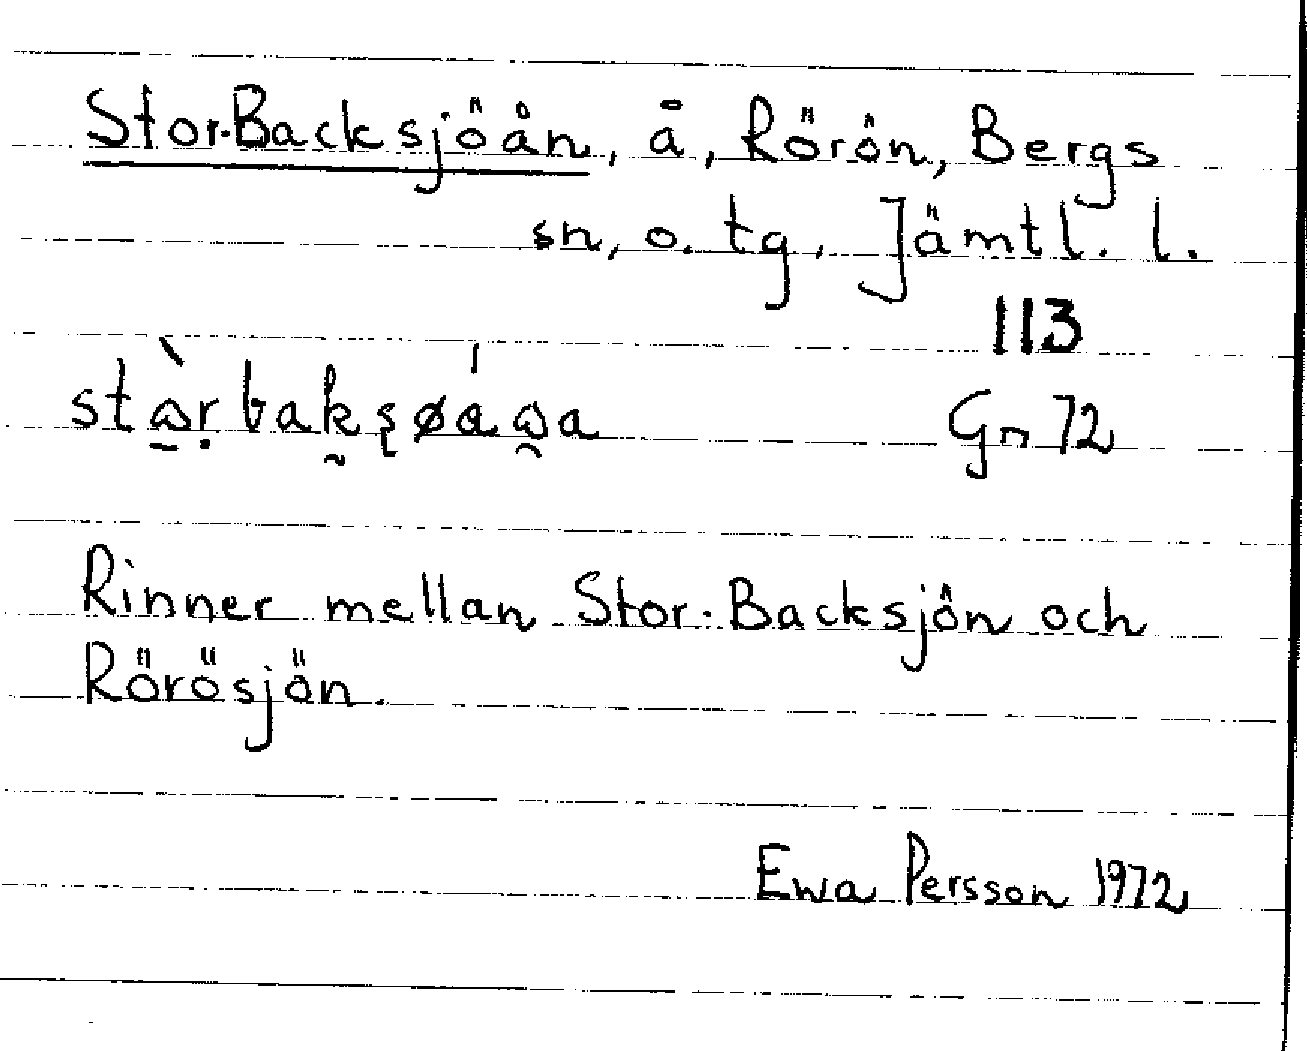 Stor-Backsjöån, å, Rörön, Bergs
sn, o. tg, Jämtl. l.
113
Gn 72
Rinner mellan Stor-Backsjön och
Rörösjön.
Ewa Persson 1972